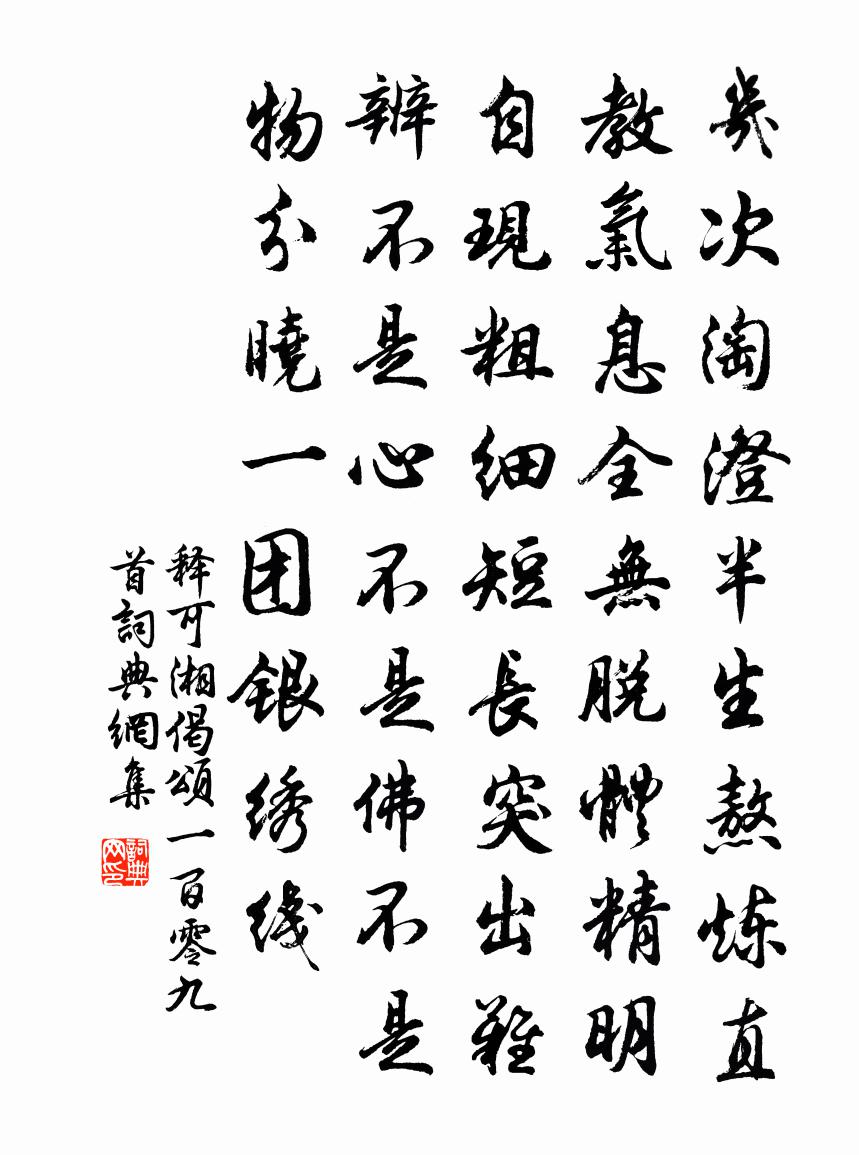 幾次淘澄半生熬炼直
教氣息全無脱體精明
自現粗细短長突出難
辨不是心不是佛不是
物分曉一团銀绣线
释可湘偈頌一百零九
首詞典網集
詞典网印